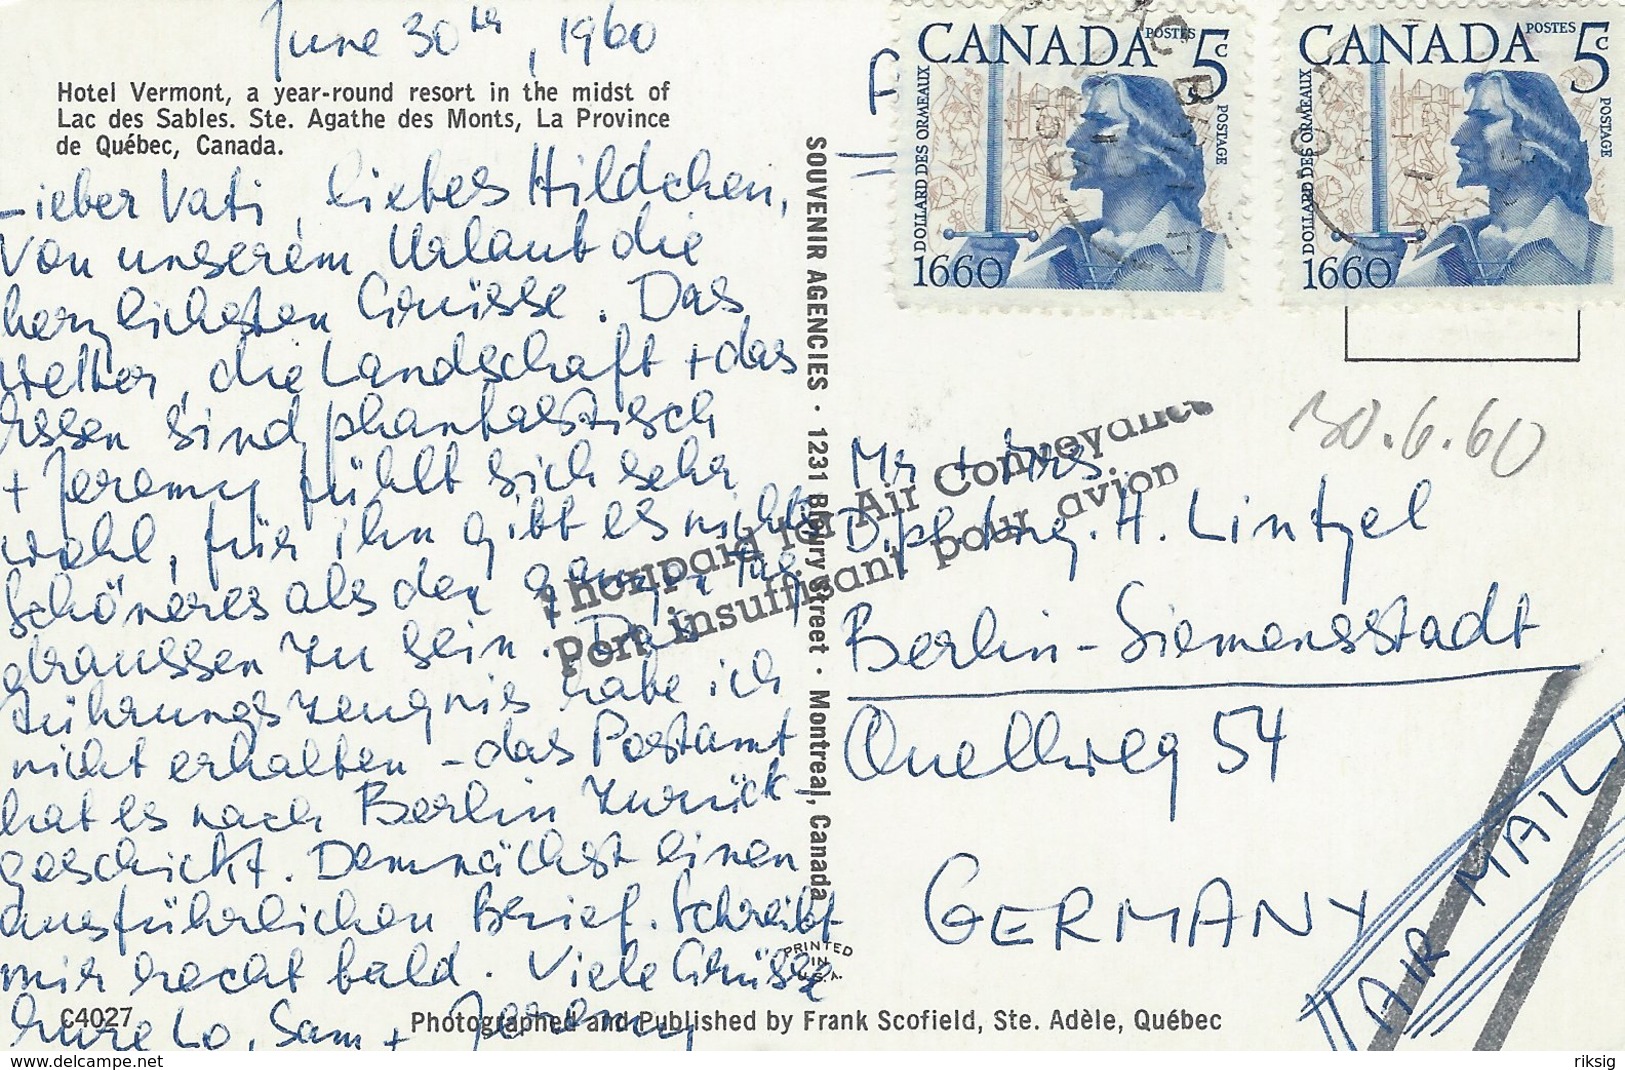 June 30th, 1960
Hotel Vermont, a year-round resort in the midst of
Lac des Sables. Ste. Agathe des Monts, La Province
de Québec, Canada.
Lieber Vati, liebes Hildchen,
von unserem Urlaub die
herzlichsten Grüsse. Das
Wetter, die Landschaft + das
Essen sind phantastisch
+ Jeremy fühlt sich sehr
wohl, für ihn gibt es nichts
schöneres als den ganzen Tag
draussen zu sein. Das
Führungszeugnis habe ich
nicht erhalten - das Postamt
hat es nach Berlin zurück-
geschickt. Demnächst einen
ausführlichen Brief. Schreibt
mir recht bald. Viele Grüsse
Eure Lo, Sam + Jeremy
C4027
Photographed and Published by Frank Scofield, Ste. Adèle, Québec
SOUVENIR AGENCIES · 1231 Bleury Street · Montreal, Canada
PRINTED
IN
U.S.A.
CANADA POSTES 5c
POSTAGE
DOLLARD DES ORMEAUX
1660
CANADA POSTES 5c
POSTAGE
DOLLARD DES ORMEAUX
1660
30.6.60
Insufficiently prepaid for Air Conveyance
Port insuffisant pour avion
Mr + Mrs.
Dipl. Ing. H. Lintzel
Berlin-Siemensstadt
Quellweg 54
GERMANY
AIR MAIL
delcampe.net
riksig